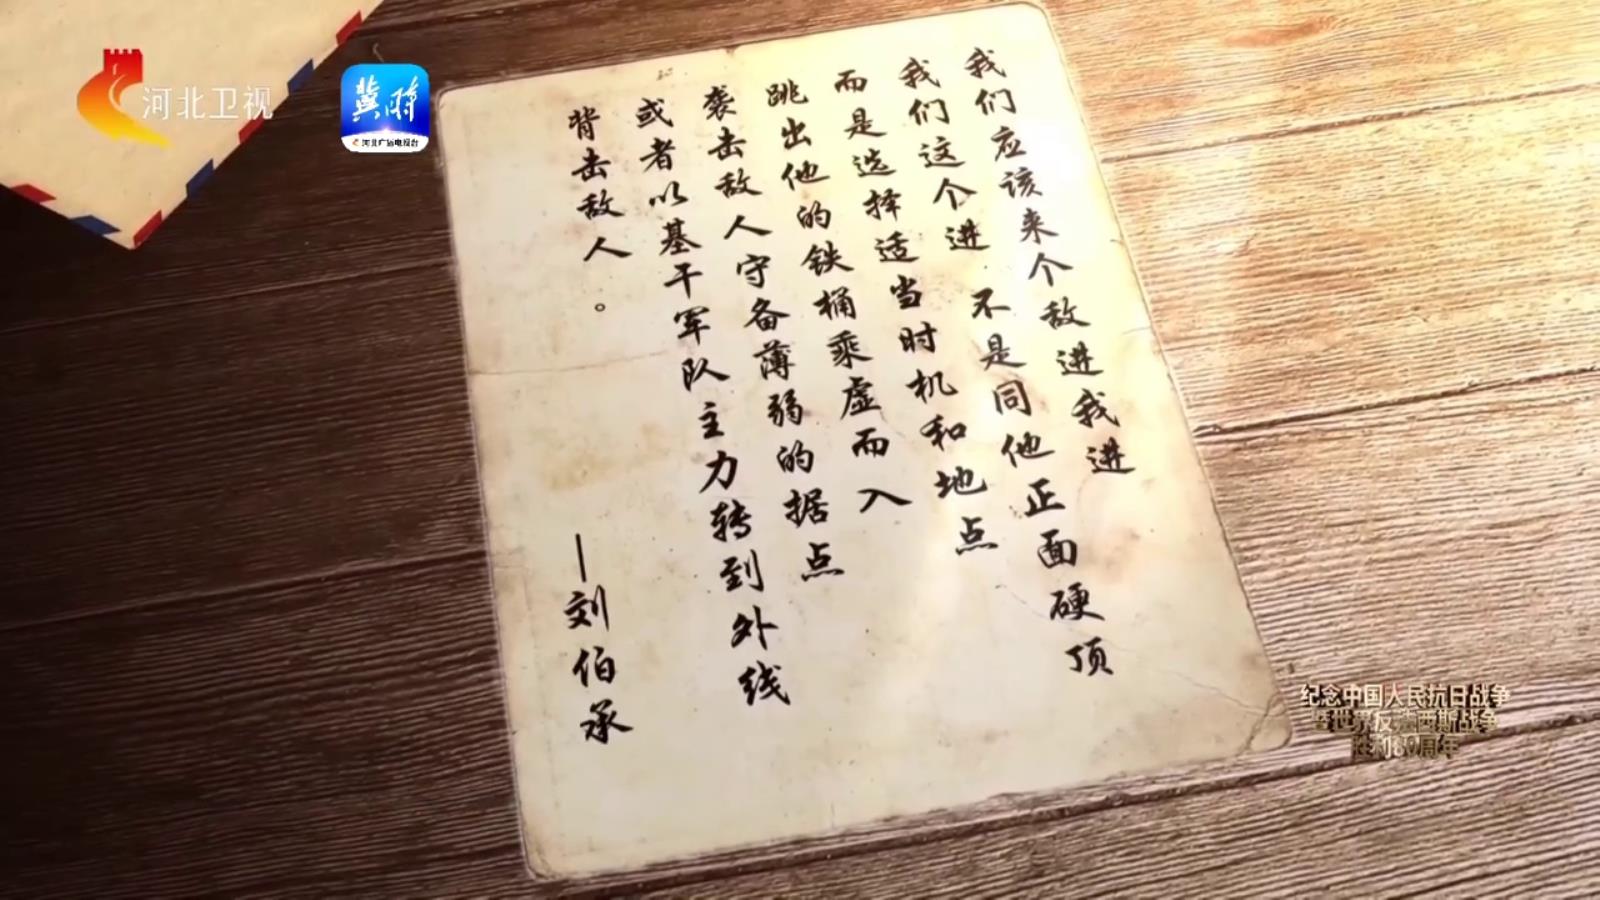 河北卫视
冀时
河北广播电视台
我们应该来个敌进我进
我们这个进 不是同他正面硬顶
而是选择适当时机和地点
跳出他的铁桶乘虚而入
袭击敌人守备薄弱的据点
或者以基干军队主力转到外线
背击敌人。
—刘伯承
纪念中国人民抗日战争
暨世界反法西斯战争
胜利80周年